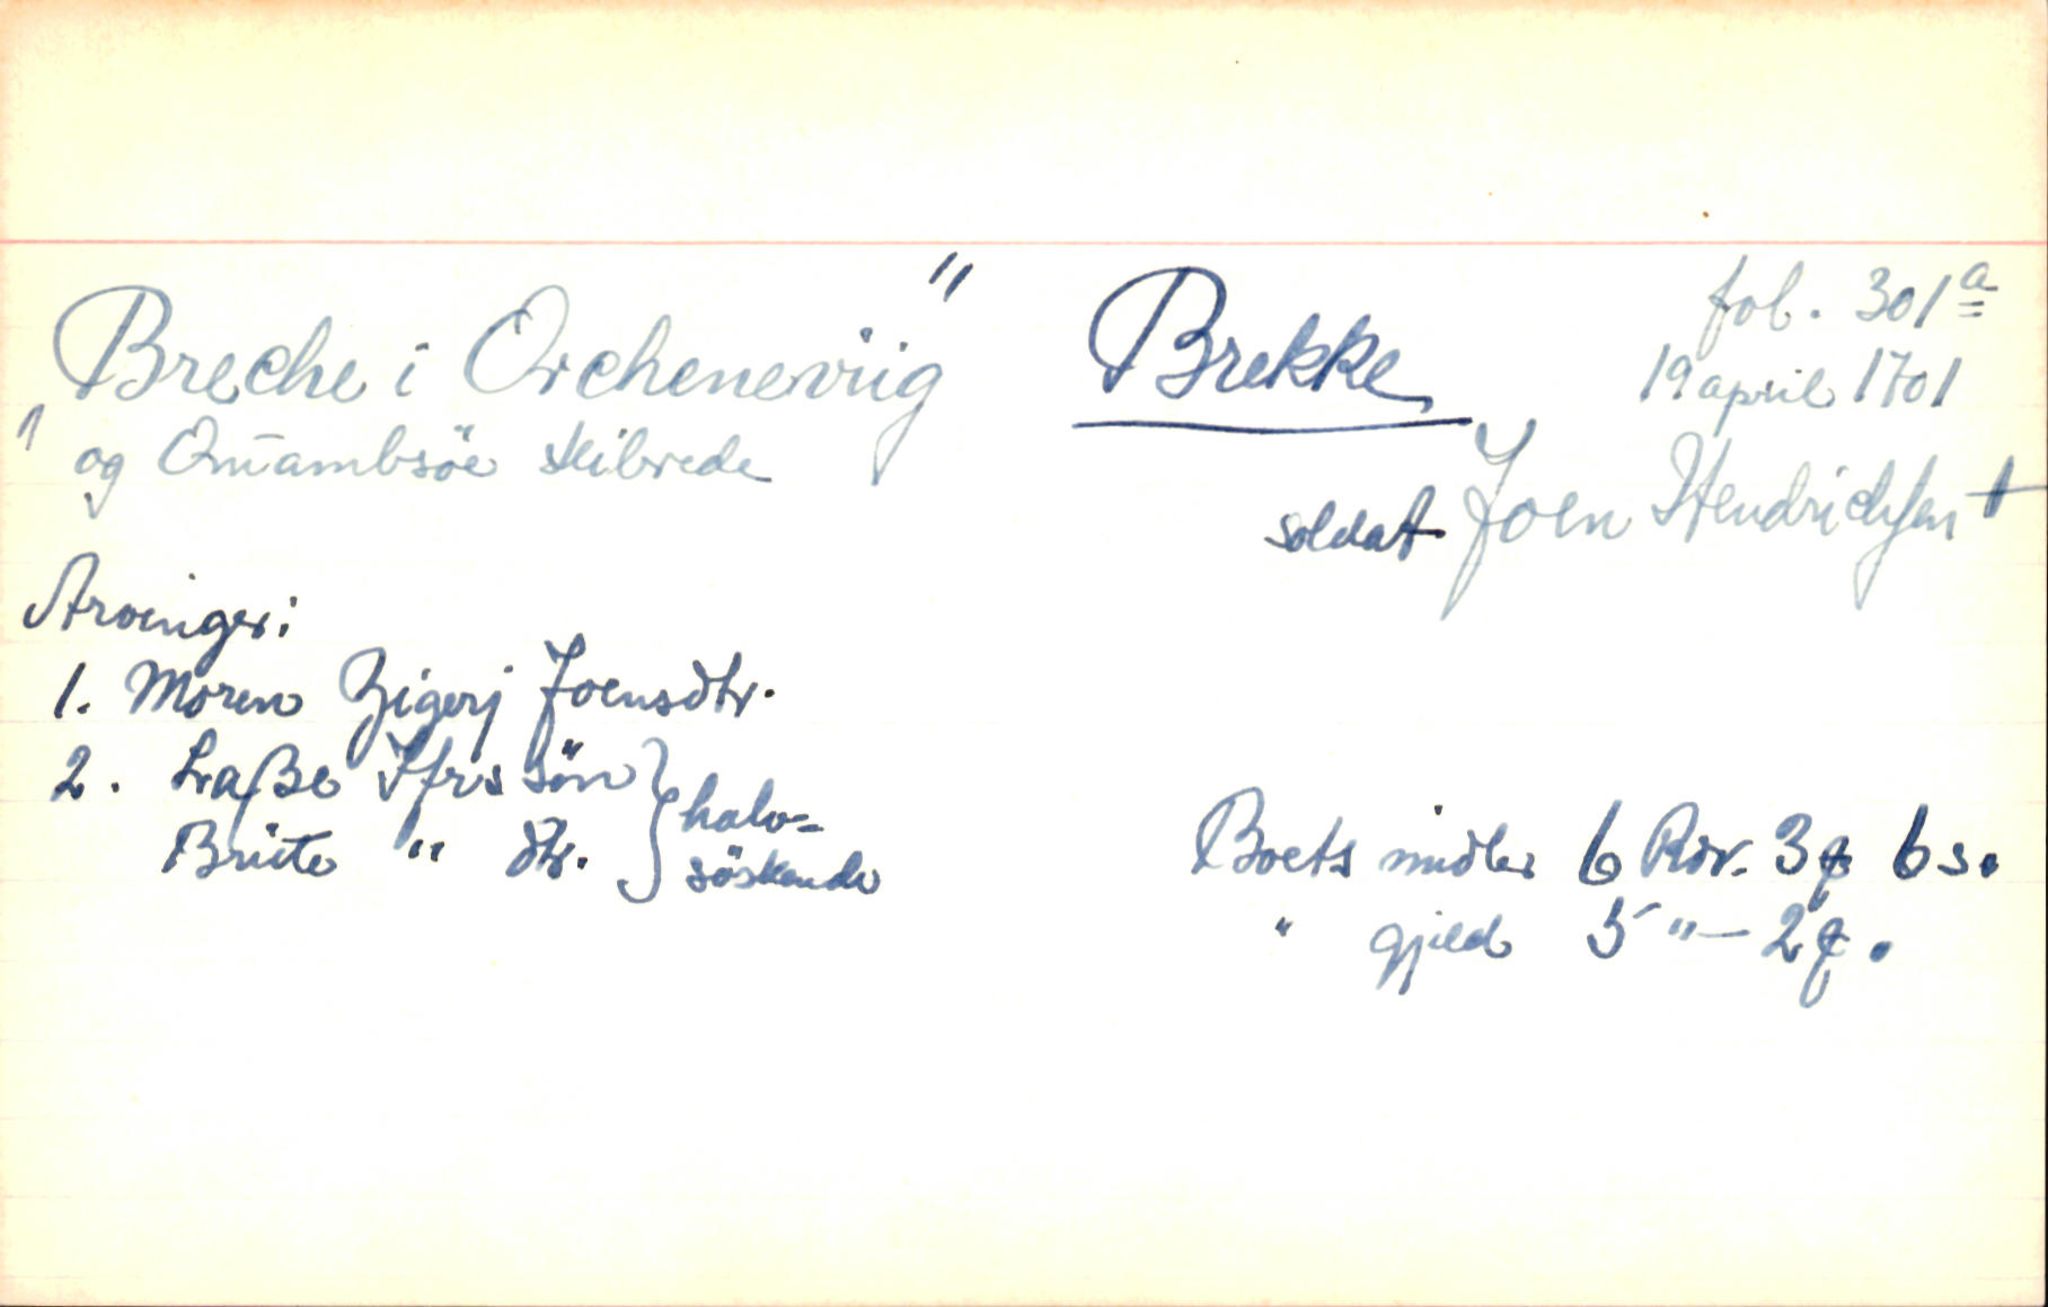 Breche i Orcheneviig"
Brekke
fol. 301a
19 april 1701
og Qūambsöe skibrede
soldat Joen Hendrichsen †
Arvinger:
1. Moren Zigerj Joensdtr.
2. Laſse Ifrs sön } halv-
Brite " dtr. } söskende
Boets midler 6 Rdr. 3 ꝗ 6 s.
" gjeld 5 "— 2 ꝗ.